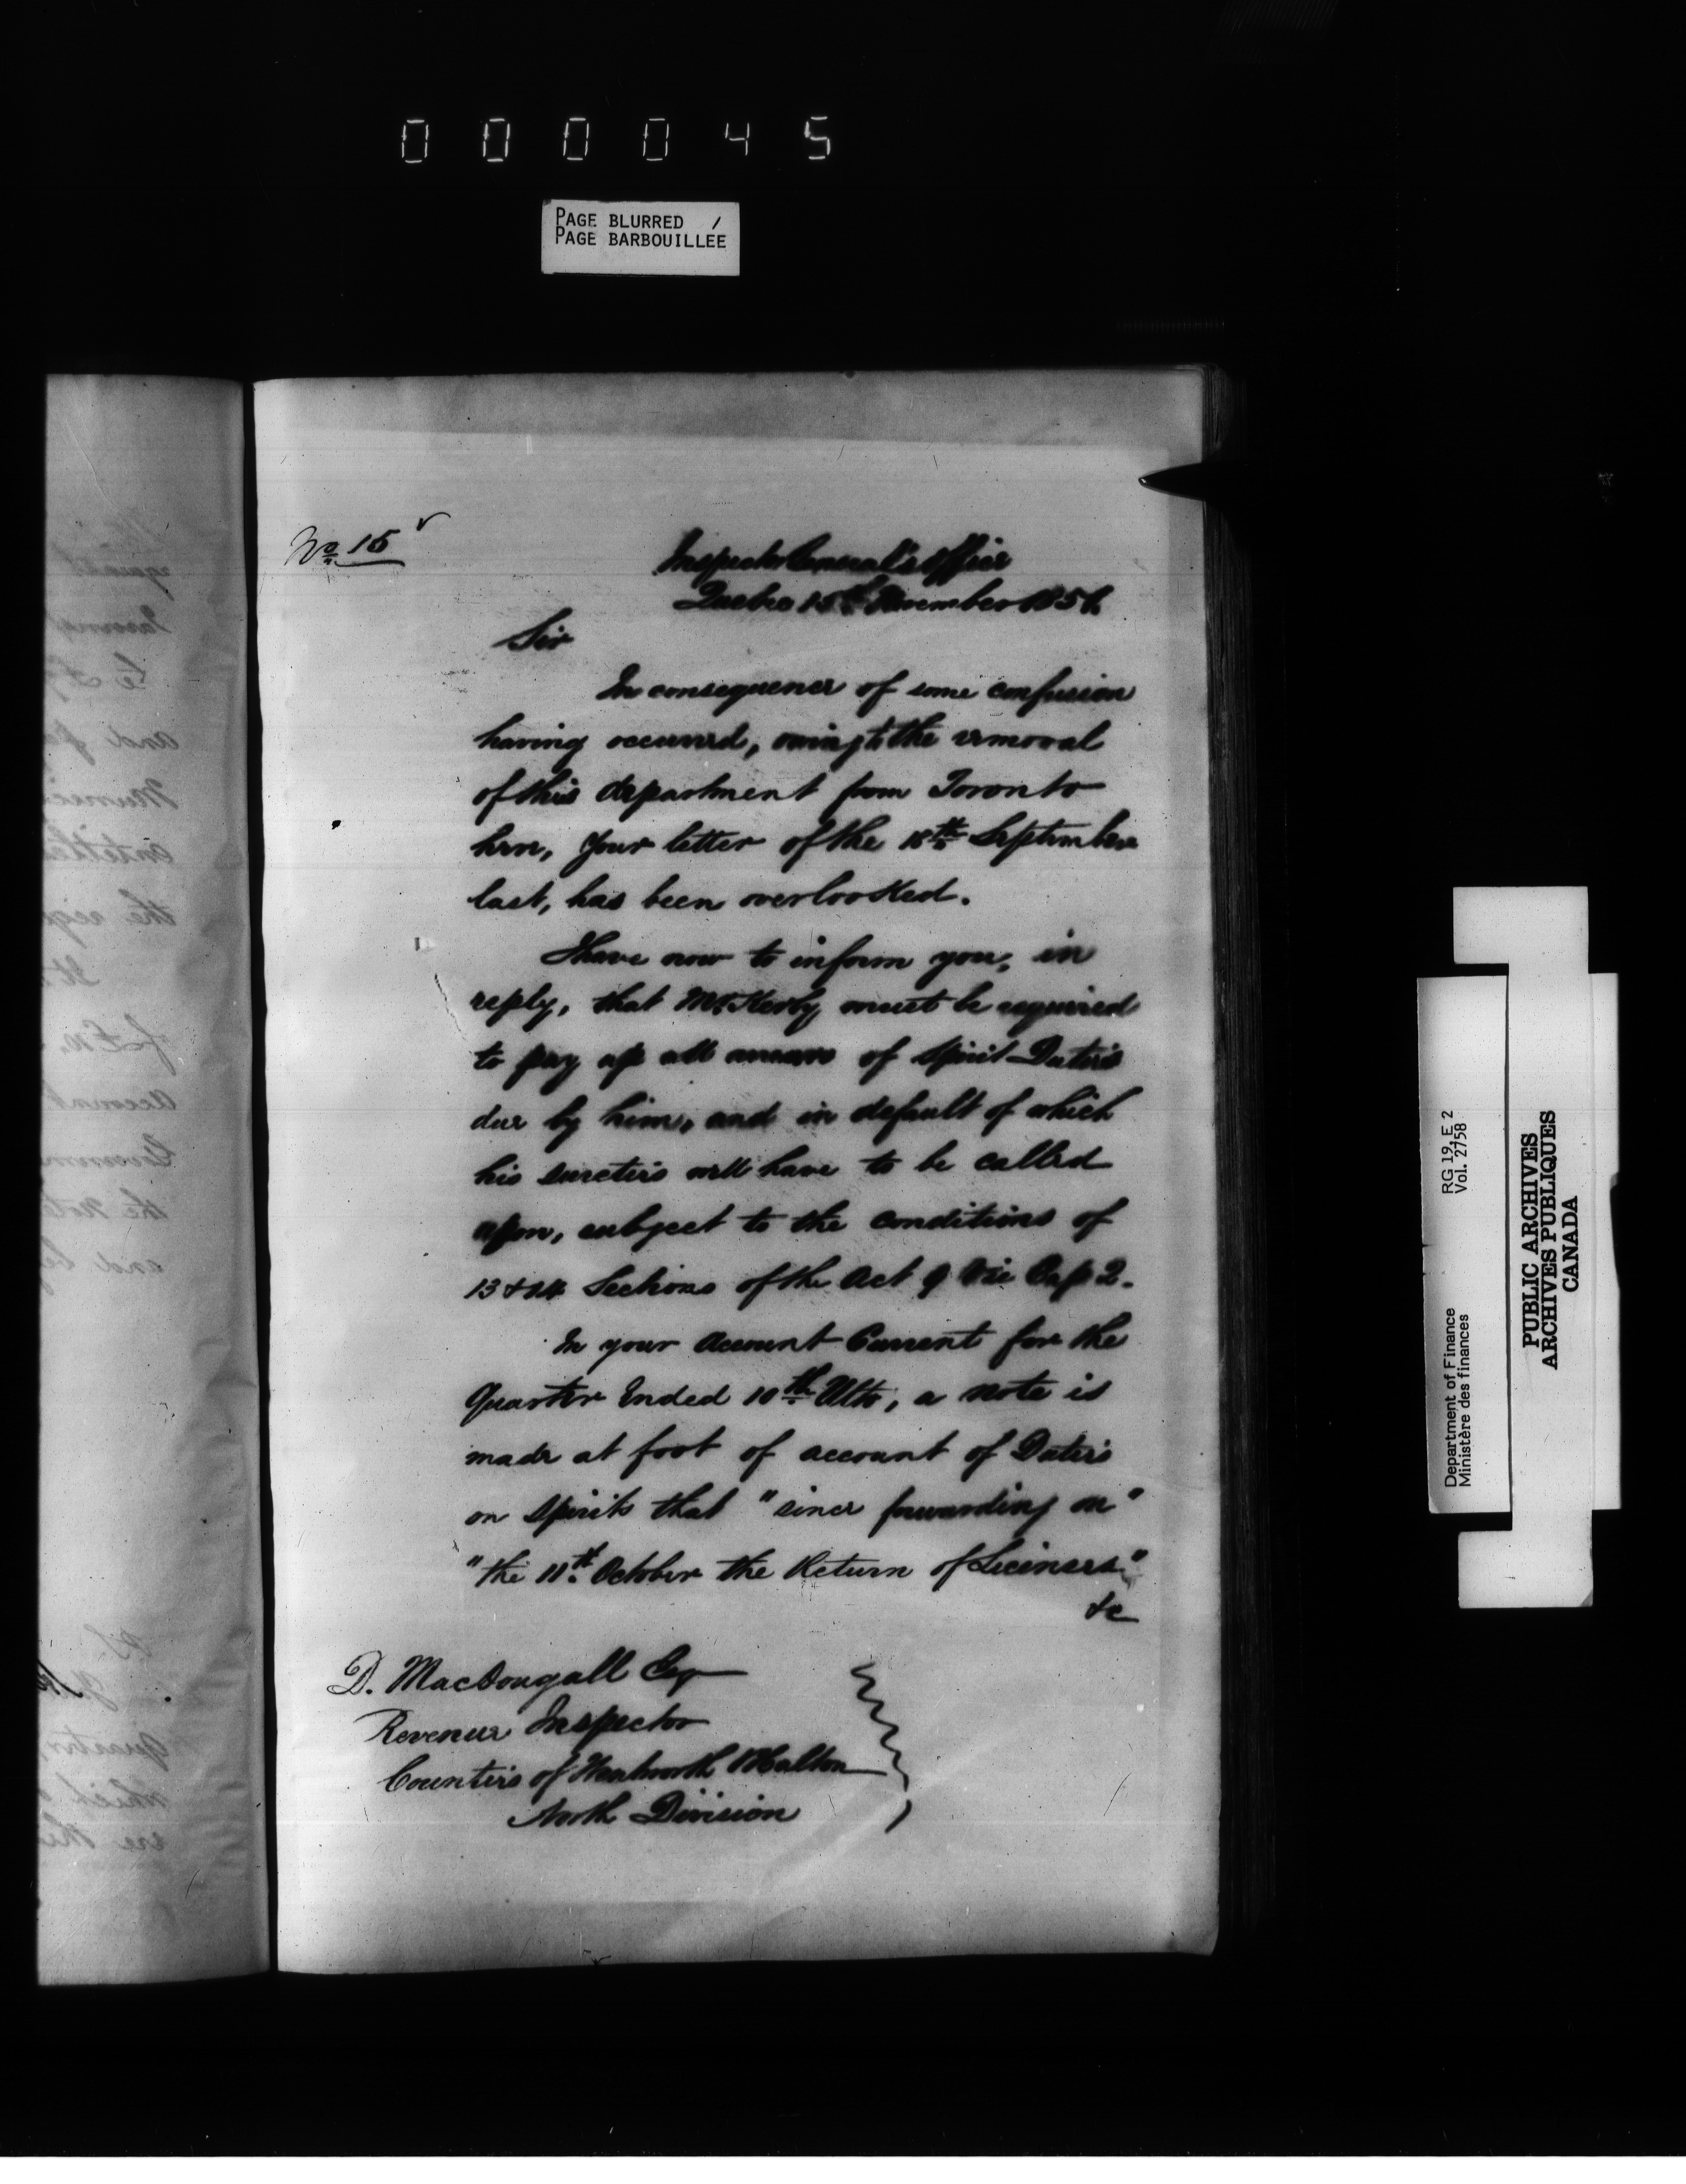 000045
PAGE BLURRED /
PAGE BARBOUILLEE
No. 15
Inspector General's Office
Quebec 15th November 1851
Sir
In consequence of some confusion
having occurred, owing to the removal
of this department from Toronto
here, Your letter of the 18th September
last, has been overlooked.
I have now to inform you, in
reply, that Mr. Kerby must be required
to pay up all arrears of Spirit Duties
due by him, and in default of which
his sureties will have to be called
upon, subject to the conditions of
13 & 14 Sections of the Act 9 Vic Cap 2.
In your Account Current for the
Quarter Ended 10th Ulto, a note is
made at foot of account of Duties
on Spirits that "since forwarding on"
"the 11th October the Return of Licenses"
&c
D. MacDougall Esq
Revenue Inspector
Counties of Wentworth & Halton
North Division
RG 19, E 2
Vol. 2758
Department of Finance
Ministère des finances
PUBLIC ARCHIVES
ARCHIVES PUBLIQUES
CANADA